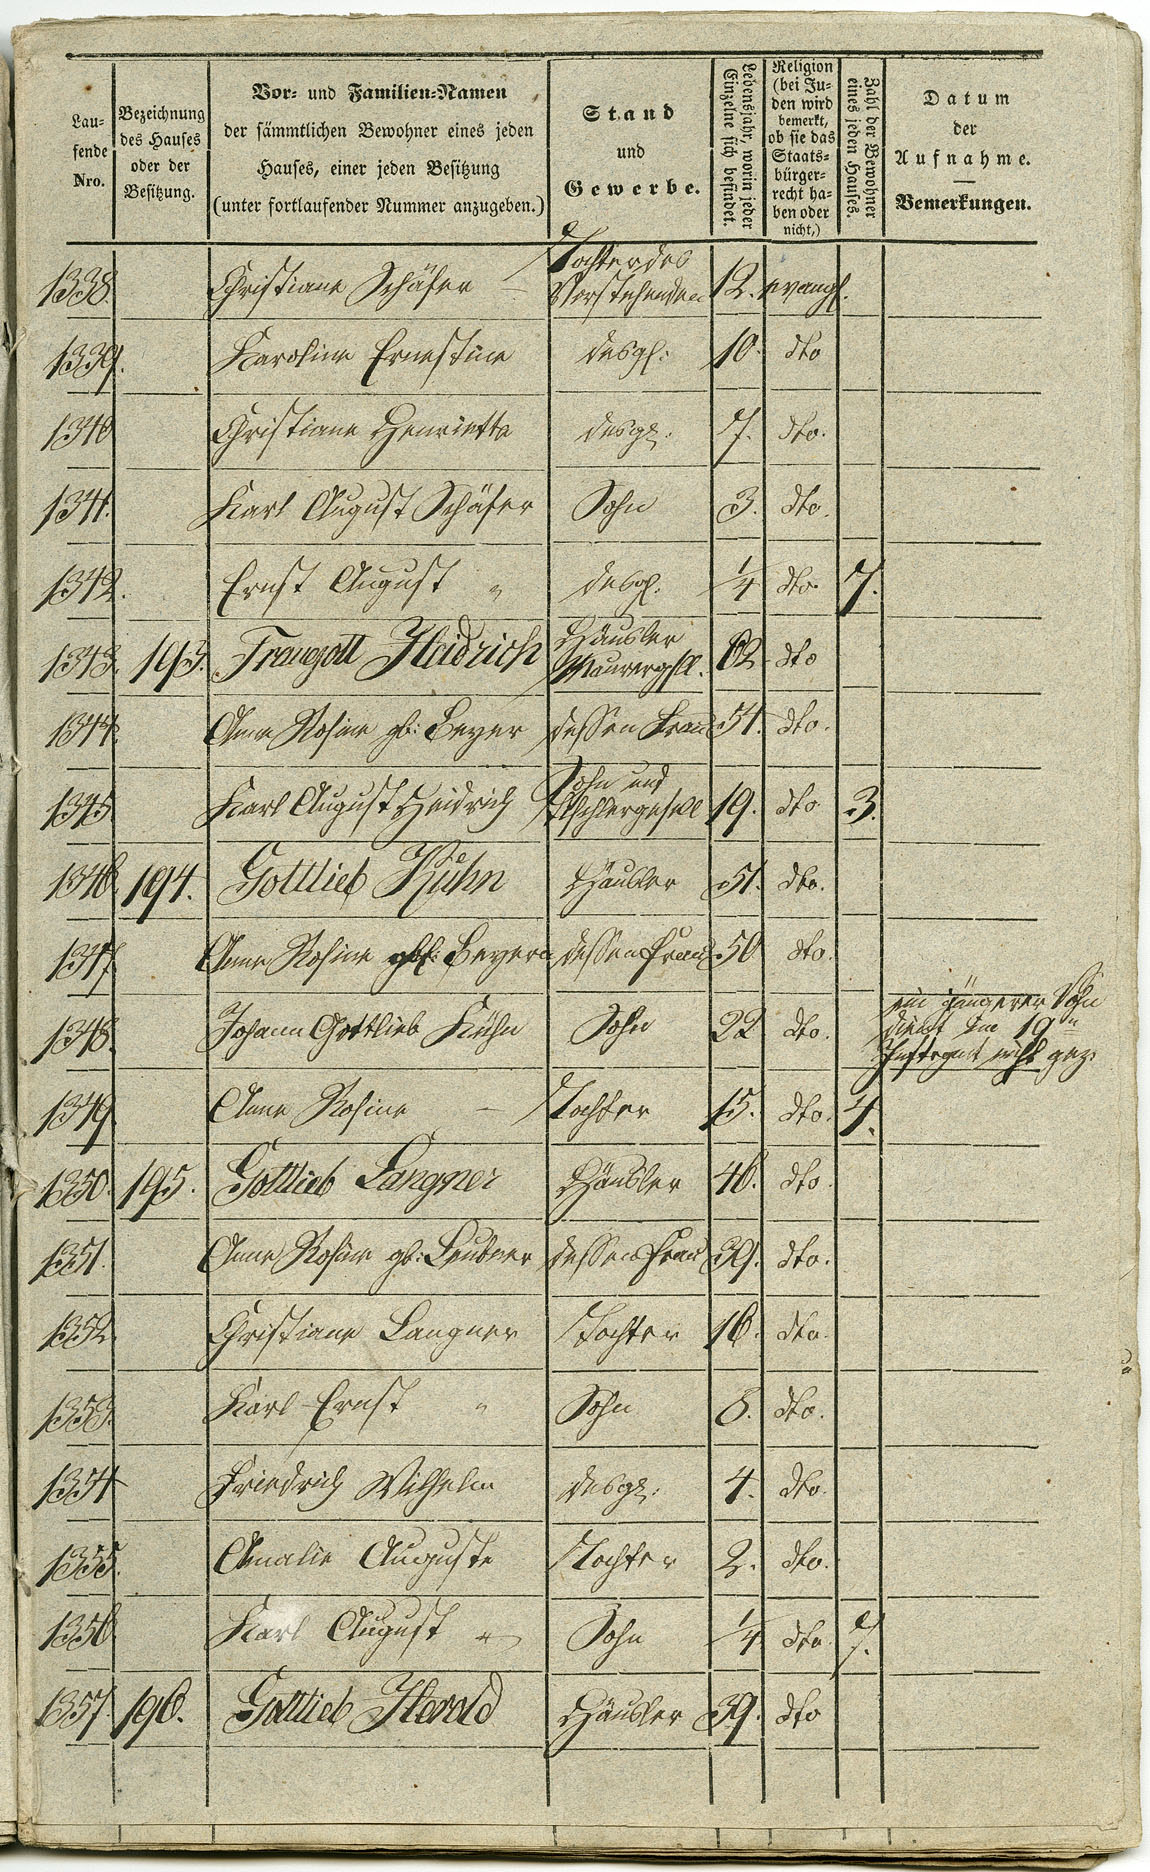 Lau-
fende
Nro.
Bezeichnung
des Hauses
oder der
Besitzung.
Vor- und Familien-Namen
der sämmtlichen Bewohner eines jeden
Hauses, einer jeden Besitzung
(unter fortlaufender Nummer anzugeben.)
Stand
und
Gewerbe.
Lebensjahr, worin jeder
Einzelne sich befindet.
Religion
(bei Ju-
den wird
bemerkt,
ob sie das
Staats-
bürger-
recht ha-
ben oder
nicht,)
Zahl der Bewohner
eines jeden Hauses.
Datum
der
Aufnahme.
Bemerkungen.
1338. Christiane Schäfer — Tochter des Vorstehenden 12. evangl.
1339. Karoline Ernestine desgl: 10. dto
1340 Christiane Henriette desgl: 7. dto.
1341. Karl August Schäfer Sohn 3. dto.
1342. Ernst August " desgl. 1/4 dto. 7.
1343. 193. Traugott Heidrich Häusler Maurergsll. 62 dto
1344. Anne Rosine gb: Beyer dessen Frau 54. dto.
1345 Karl August Heidrich Sohn und Tischlergesell 19. dto 3.
1346 194. Gottlieb Kühn Häusler 51. dto.
1347 Anne Rosine gb: Beyern dessen Frau 50 dto.
1348. Johann Gottlieb Kühn Sohn 22 dto. ein jüngerer Sohn
dient im 19n
Inftregmt nicht gez.
1349 Anne Rosine — Tochter 15. dto. 4.
1350. 195. Gottlieb Langner Häusler 46. dto.
1351. Anne Rosine gb: Leubner dessen Frau 39. dto.
1352. Christiane Langner Tochter 16. dto.
1353. Karl Ernst " Sohn 8. dto.
1354 Friedrich Wilhelm desgl: 4. dto.
1355. Amalie Auguste Tochter 2. dto.
1356 Karl August " Sohn 1/4 dto 7.
1357 196. Gottlieb Herold Häusler 39. dto